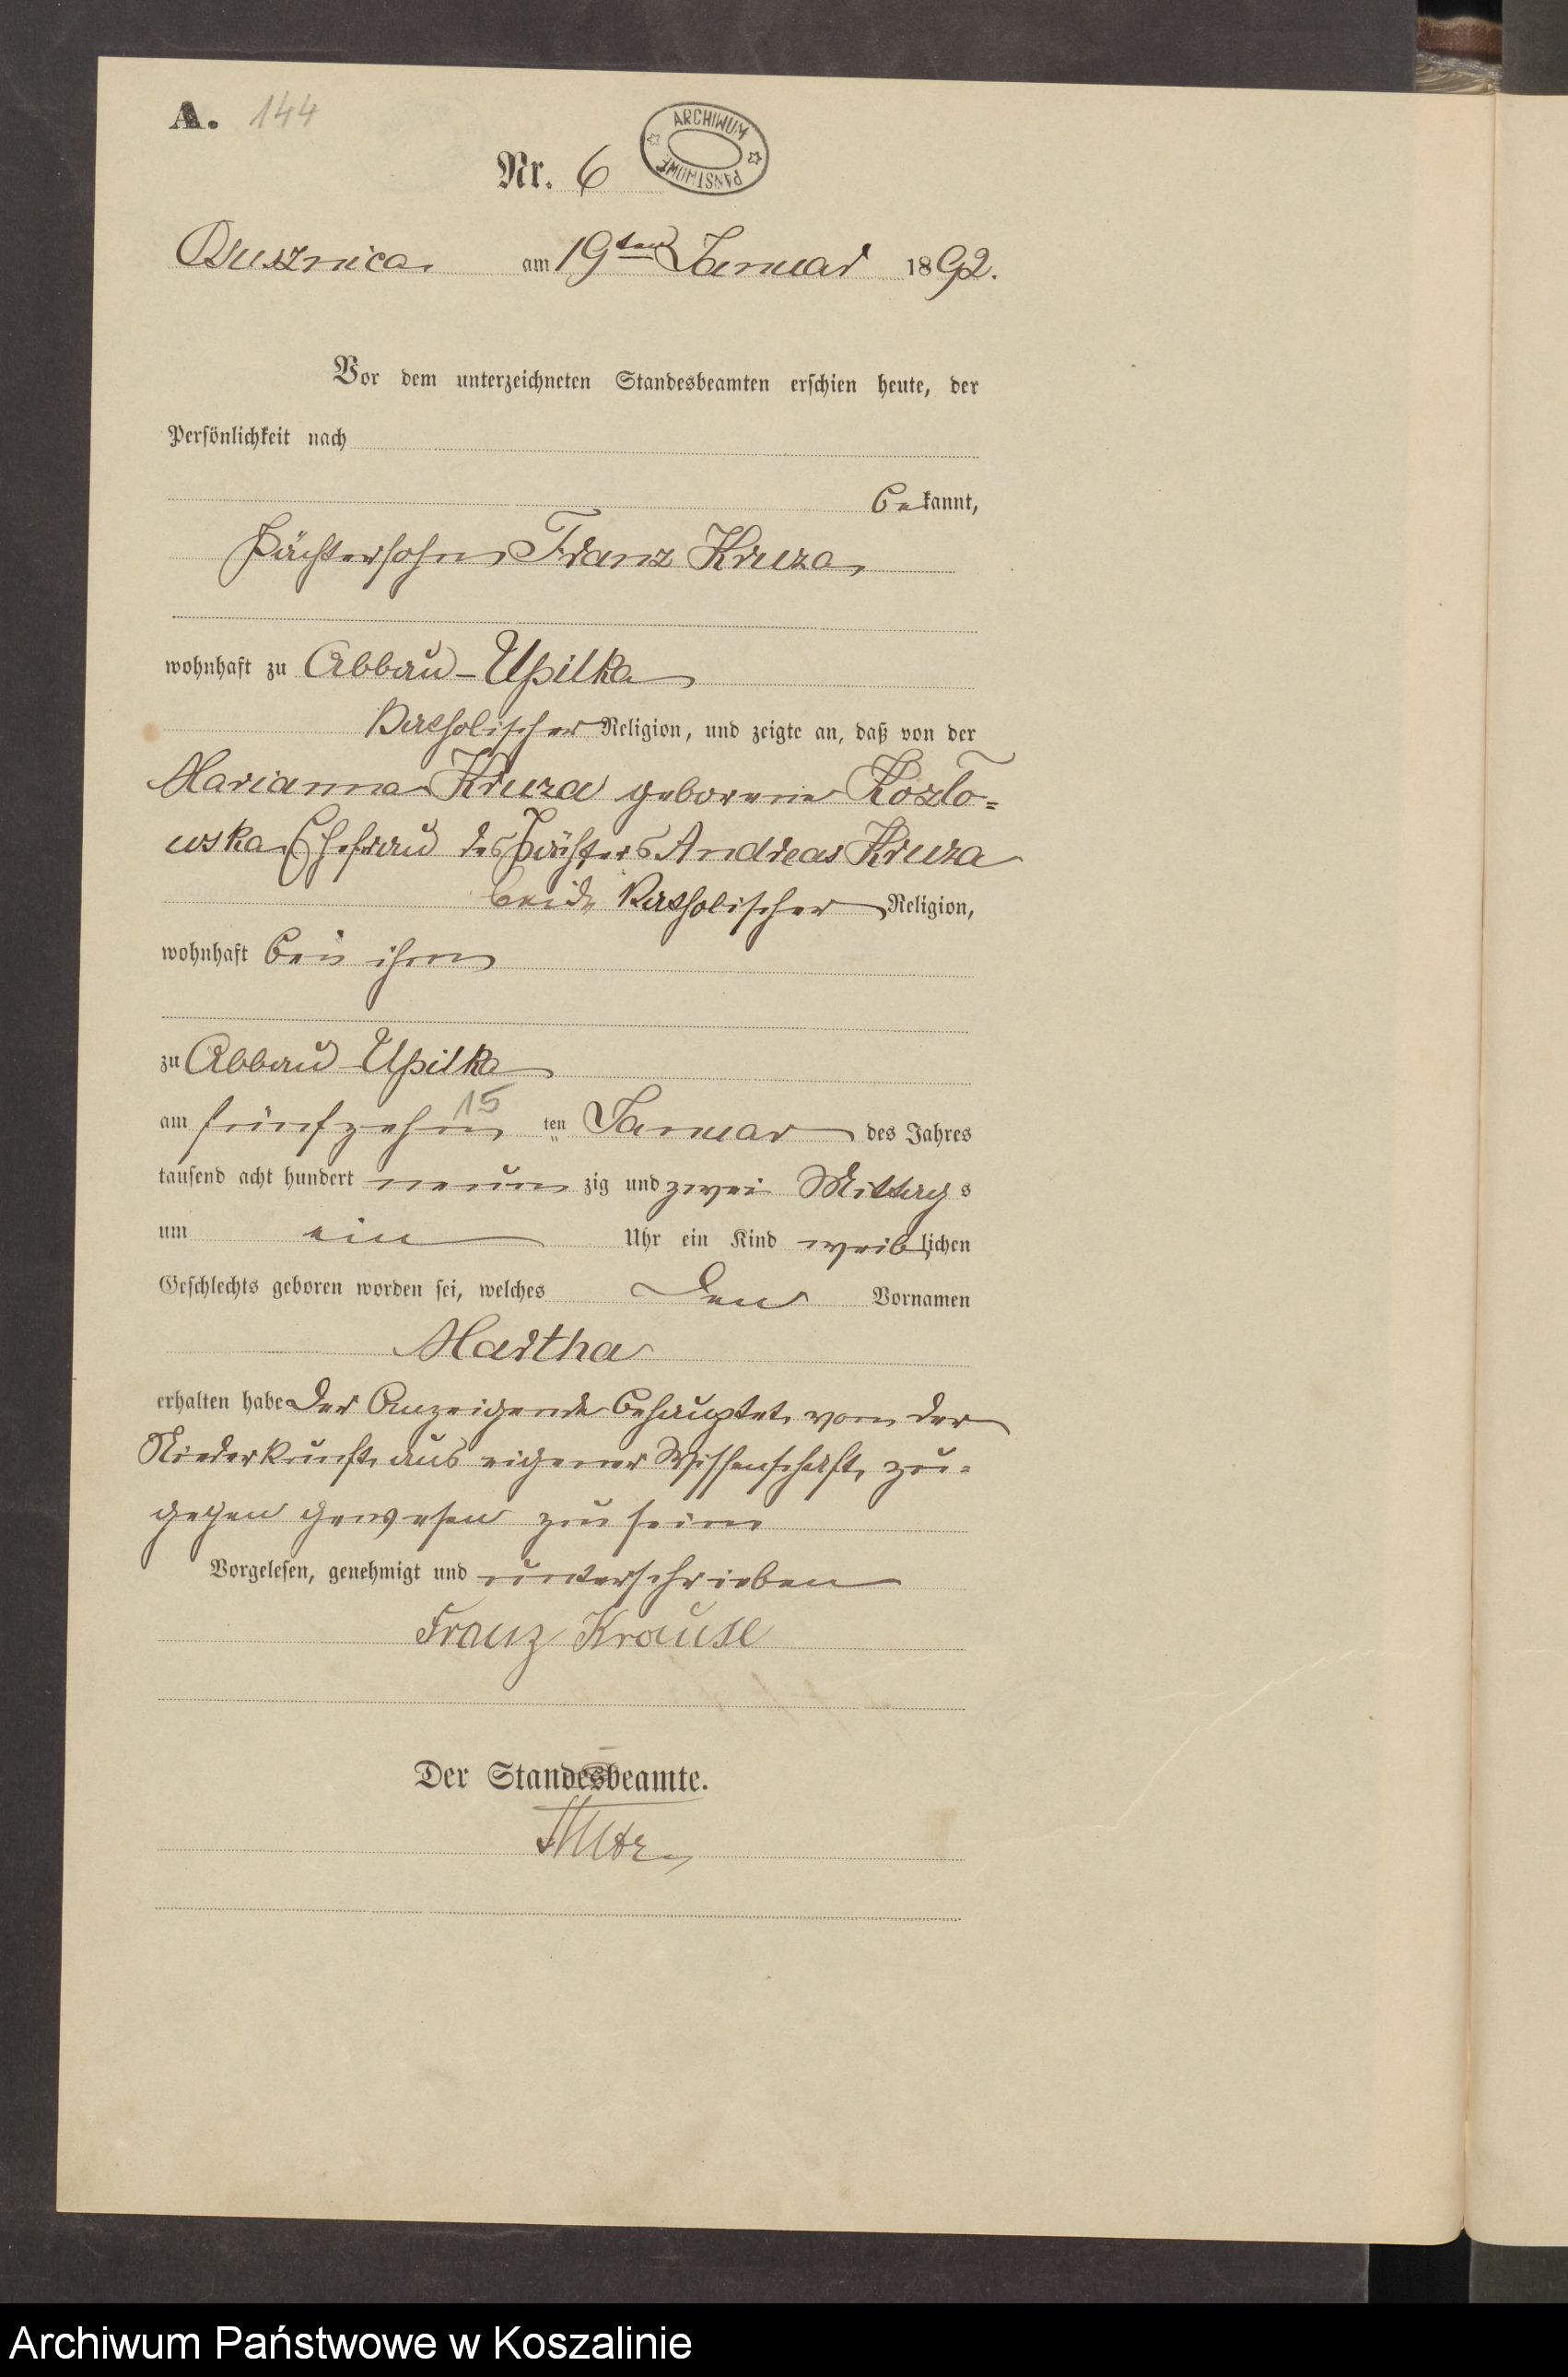 A. 144
ARCHIWUM
PAŃSTWOWE
Nr. 6
Brusznica am 19ten Januar 1892.
Vor dem unterzeichneten Standesbeamten erschien heute, der
Persönlichkeit nach
bekannt,
Pächtersohn Franz Kruza
wohnhaft zu Abbau-Upilka
katholischer Religion, und zeigte an, daß von der
Marianna Kruza geborene Kozlo=
wska Ehefrau des Pächters Andreas Kruza
beide katholischer Religion,
wohnhaft bei ihm
zu Abbau Upilka
am fünfzehn 15 ten Januar des Jahres
tausend acht hundert neun zig und zwei Mittags
um ein Uhr ein Kind weiblichen
Geschlechts geboren worden sei, welches den Vornamen
Martha
erhalten habe Der Anzeigende behauptet von der
Niederkunft aus eigener Wissenschaft, zu=
gegen gewesen zu sein
Vorgelesen, genehmigt und unterschrieben
Franz Krause
Der Standesbeamte.
Archiwum Państwowe w Koszalinie